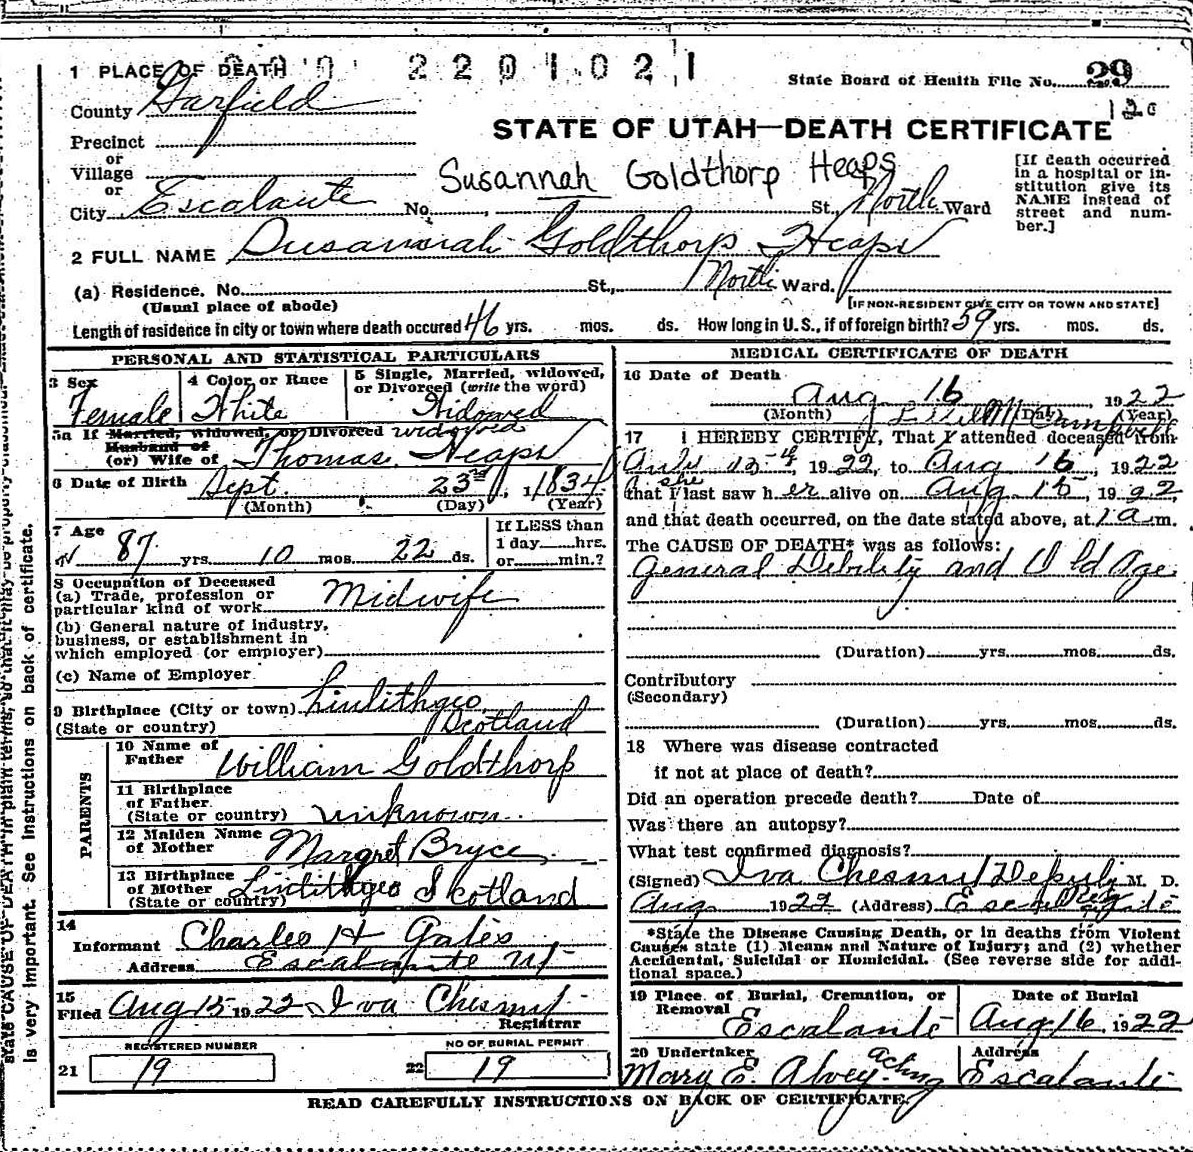 1 PLACE OF DEATH 2201021
State Board of Health File No. 29
County Garfield
120
STATE OF UTAH—DEATH CERTIFICATE
Precinct
or
Village
or
City Escalante No. , St., North Ward
Susannah Goldthorp Heaps
[If death occurred in a hospital or in-
stitution give its
NAME instead of
street and num-
ber.]
2 FULL NAME Susannah Goldthorp Heaps
(a) Residence. No. St., North Ward.
(Usual place of abode)
[IF NON-RESIDENT GIVE CITY OR TOWN AND STATE]
Length of residence in city or town where death occured 46 yrs. mos. ds. How long in U. S., if of foreign birth? 59 yrs. mos. ds.
PERSONAL AND STATISTICAL PARTICULARS
3 Sex
Female
4 Color or Race
White
5 Single, Married, Widowed,
or Divorced (write the word)
Widowed
5a If Married, Widowed, or Divorced widowed
Husband of
(or) Wife of Thomas Heaps
6 Date of Birth Sept. 23rd, 1834
(Month) (Day) (Year)
7 Age
87 yrs. 10 mos. 22 ds.
If LESS than
1 day hrs.
or min.?
8 Occupation of Deceased
(a) Trade, profession or
particular kind of work Midwife
(b) General nature of industry,
business, or establishment in
which employed (or employer)
(c) Name of Employer
9 Birthplace (City or town) Linlithgeo
(State or country) Scotland
PARENTS
10 Name of
Father William Goldthorp
11 Birthplace
of Father
(State or country) unknown
12 Maiden Name
of Mother Margret Bryce
13 Birthplace
of Mother
(State or country) Linlithgeo Scotland
14
Informant Charles H Gates
Address Escalante Ut
15
Filed Aug 15 1922 Iva Chesnut
Registrar
REGISTERED NUMBER
21 19
NO OF BURIAL PERMIT
22 19
MEDICAL CERTIFICATE OF DEATH
16 Date of Death
Aug 16, 1922
(Month) (Day) (Year)
17 I HEREBY CERTIFY, That I attended deceased from
15th, 1922, to Aug 16, 1922
she
that I last saw her alive on Aug 15, 1922,
and that death occurred, on the date stated above, at 1 a m.
The CAUSE OF DEATH* was as follows:
General Debility and Old Age
(Duration) yrs. mos. ds.
Contributory
(Secondary)
(Duration) yrs. mos. ds.
18 Where was disease contracted
if not at place of death?
Did an operation precede death? Date of
Was there an autopsy?
What test confirmed diagnosis?
(Signed) Iva Chesnut Deputy M. D.
Aug 1922 (Address) Escalante
Reg
*State the Disease Causing Death, or in deaths from Violent
Causes state (1) Means and Nature of Injury; and (2) whether
Accidental, Suicidal or Homicidal. (See reverse side for addi-
tional space.)
19 Place of Burial, Cremation, or
Removal
Escalante
Date of Burial
Aug 16, 1922
20 Undertaker
Mary E. Alvey acting
Address
Escalante
READ CAREFULLY INSTRUCTIONS ON BACK OF CERTIFICATE.
state CAUSE OF DEATH in plain terms, so that it may be properly classified.
is very important. See instructions on back of certificate.